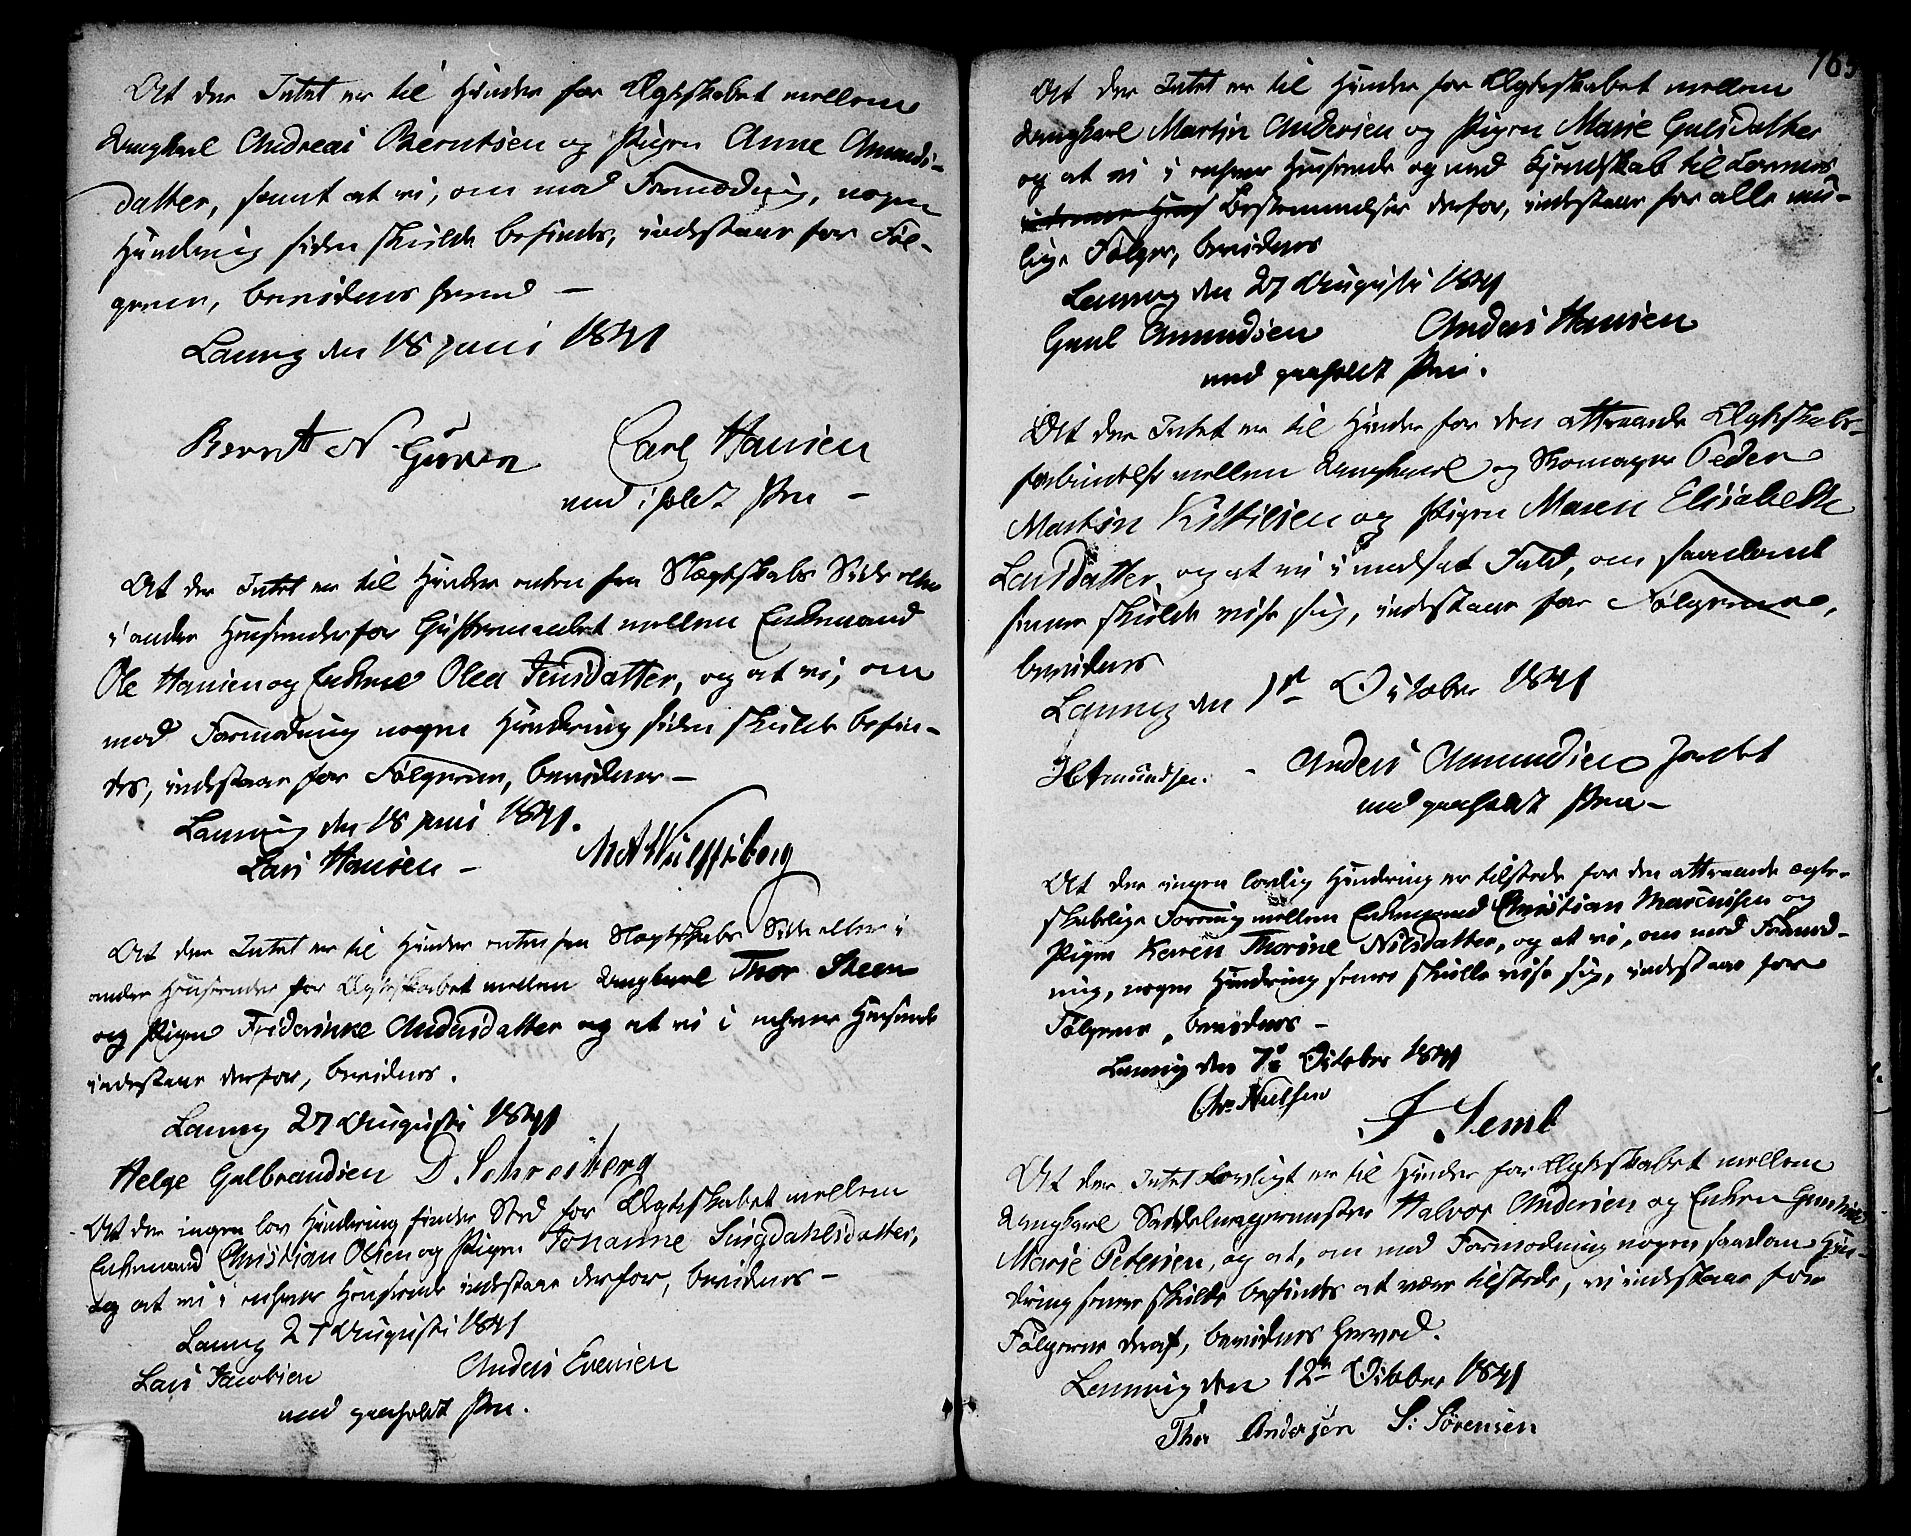 At der Intet er til Hinder for Ægteskabet mellem
Ungkarl Andreas Berntsen og Pigen Anne Amunds-
datter, samt at vi, om mod Formodning, nogen
Hindring siden skulde befindes, indestaaer for Føl-
gerne, bevidnes herved —
Laurvig den 18 Juni 1841
Bernt N. Carl Hansen
med iholdt Pen —
At der Intet er til Hinder enten fra Slægtskabs Side eller
i andre Henseender for Giftermaalet mellem Enkemand
Ole Hansen og Enken Olea Jensdatter, og at vi, om
mod Formodning nogen Hindring siden skulde befin-
des, indestaaer for Følgerne, bevidnes —
Laurvig den 18 Juni 1841.
Lars Hansen — M A Wulfsberg
At der Intet er til Hinder enten fra Slægtskabs Side eller i
andre Henseender for Ægteskabet mellem Ungkarl Thor Steen
og Pigen Frederikke Andersdatter og at vi i enhver Henseende
indestaaer derfor, bevidnes.
Laurvig 27 Augusti 1841
Helge Gulbrandsen D. Schreiberg
At der ingen lov Hindring finder Sted for Ægteskabet mellem
Enkemand Christian Olsen og Pigen Johanne Singdahlsdatter,
og at vi i enhver Henseende indestaaer derfor, bevidnes —
Laurvig 27 Augusti 1841
Lars Jacobsen Anders Evensen
med paaholdt Pen.
165
At der Intet er til Hinder for Ægteskabet mellem
Ungkarl Martin Andersen og Pigen Marie Gulsdatter
og at vi i enhver Henseende og med Kjendskab til Lovens
Bestemmelser derfor, indestaaer for alle mu-
lige Følger, bevidnes
Laurvig den 27 Augusti 1841
Gunl Amundsen Anders Hansen
med paaholdt Pen.
At der Intet er til Hinder for den attraaede Ægteskabs-
forbindelse mellem Ungkarl og Skomager Peder
Martin Kittilsen og Pigen Maren Elisabeth
Larsdatter, og at vi i modsat Fald, om saadant
senere skulde vise sig, indestaaer for Følgerne,
bevidnes
Laurvig den 1st October 1841
H Amundsen. - Anders Amundsen
med paaholdt Pen —
At der ingen lovlig Hindring er tilstede for den attraaede ægte-
skabelige Forening mellem Enkemand Christian Marcussen og
Pigen Karen Thorine Nilsdatter, og at vi, om mod Formod-
ning, nogen Hindring senere skulle vise sig, indestaae for
Følgerne, bevidnes —
Laurvig den 7de October 1841
Chr. Nielsen
F Semb
At der Intet Lovligt er til Hinder for Ægteskabet mellem
Ungkarl Saddelmagermester Halvor Andersen og Enken
Marie Petersen, og at, om mod Formodning nogen saadan Hin-
dring senere skulde befindes at være tilstede, vi indestaae for
Følgerne deraf, bevidnes herved.
Laurvig den 12te October 1841
Thor Andersen S: Sørensen